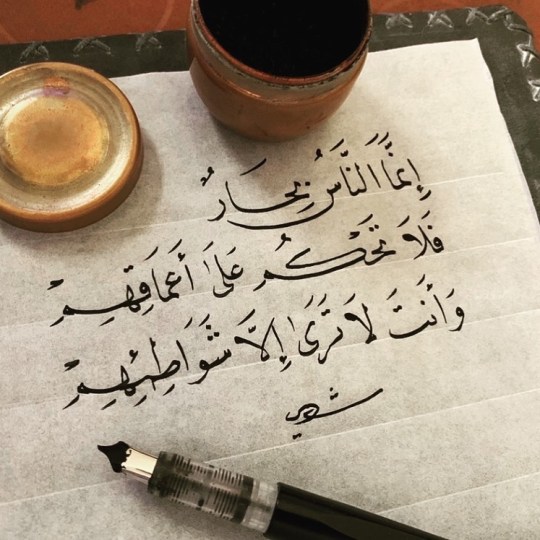 إِنَّمَا النَّاسُ بِحَارٌ
فَلَا تَحْكُمْ عَلَىٰ أَعْمَاقِهِمْ
وَأَنْتَ لَا تَرَىٰ إِلَّا شَوَاطِئِهِمْ